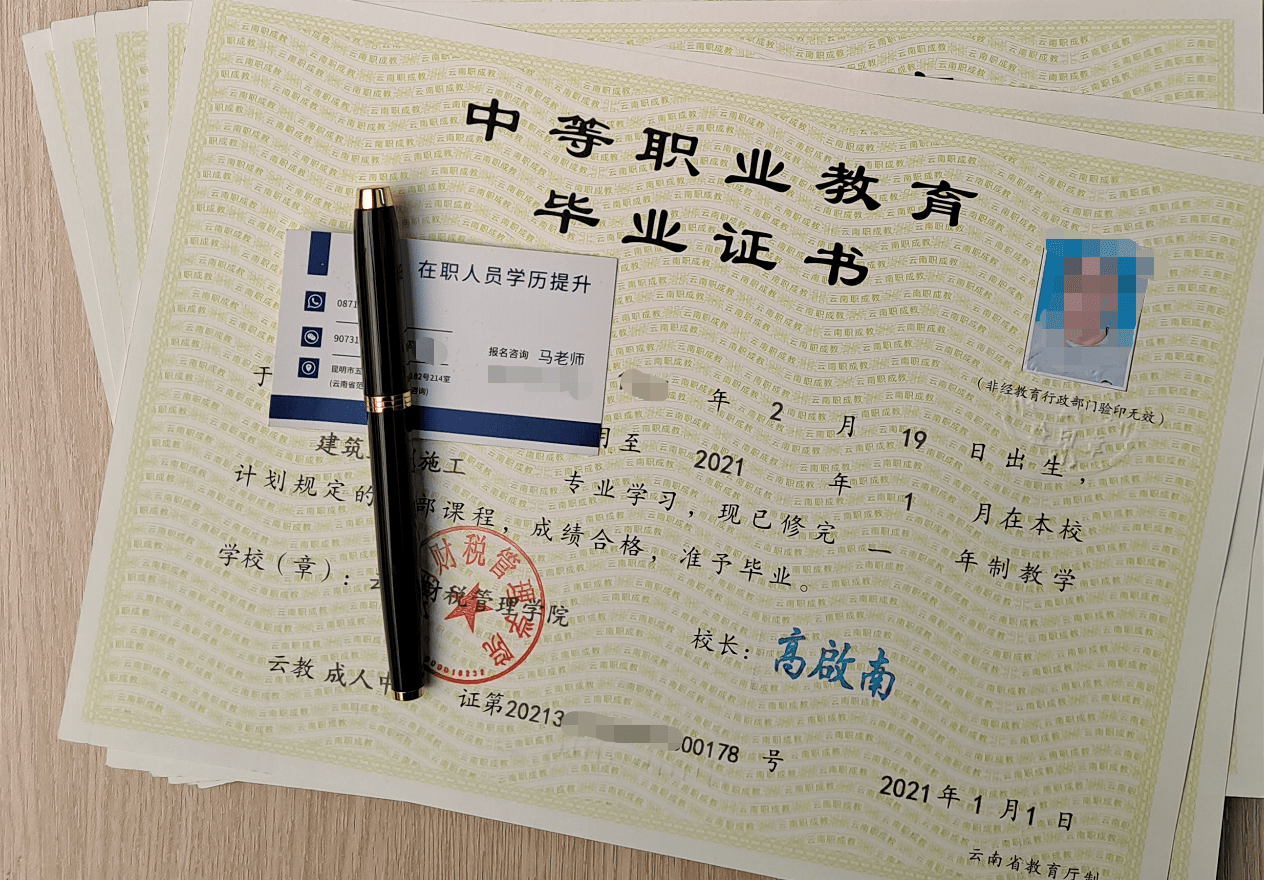 中等职业教育
毕业证书
在职人员学历提升
0871
90731
报名咨询 马老师
昆明市五
182号214室
(云南省范
咨询)
(非经教育行政部门验印无效)
于
年 2 月 19 日出生,
月至 2021 年 1 月在本校
建筑 施工 专业学习,现已修完 一 年制教学
计划规定的 部课程,成绩合格,准予毕业。
学校(章): 财税管理学院
财税管理学院
校长: 高啟南
云教 成人中
证第20213
00178 号
2021年1月1日
云南省教育厅制
云南职成教